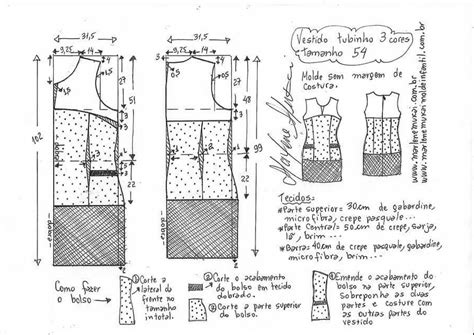 31,5
9,25
14
31,5
9,25
14
Vestido tubinho 3 cores
tamanho 54
Molde sem margem de
costura.
www.marlenemukai.com.br
www.marlenemukaimoldeinfantil.com.br
Marlene Mukai
102
27
51
22
48
99
dobra
dobra
Tecidos:
*Parte superior= 30cm de gabardine,
microfibra, crepe pasquale...
*Parte Central= 50cm de crepe, sarja,
lã, brim...
*Barra: 40cm de crepe pasquale, gabardine,
microfibra, brim...
Como fazer
o bolso →
① Corte a
lateral da
frente no
tamanho
total.
② Corte o acabamento
do bolso em tecido
dobrado.
② Corte a parte superior
do bolso.
③ Emende o acabamento do
bolso na parte superior,
Sobreponha as duas
partes e costure com
as outras partes do
vestido